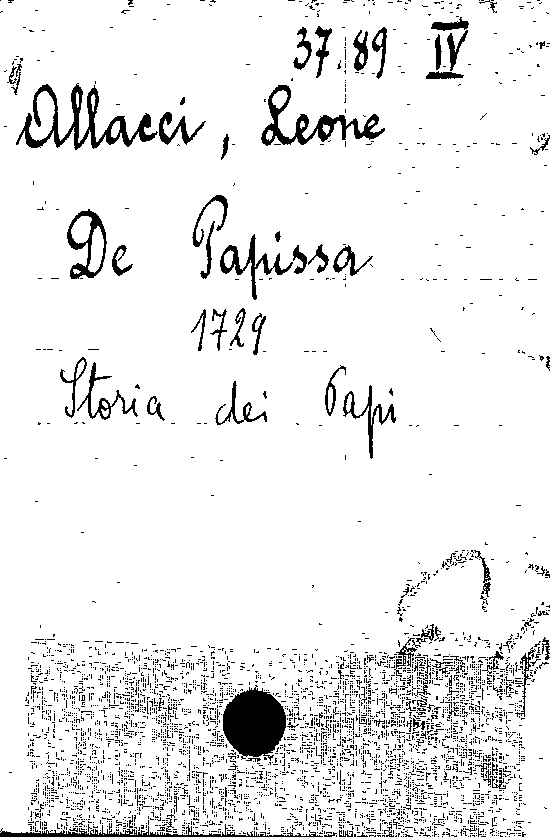 37.89 IV
Allacci, Leone
De Papissa
1729
Storia dei Papi